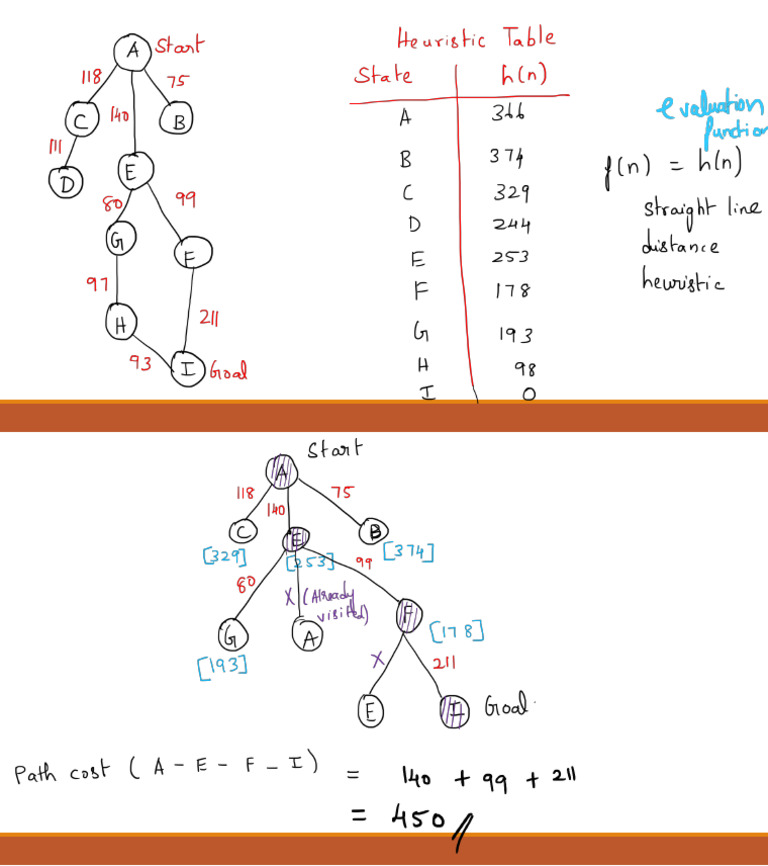 A Start
118 75
C 140 B
111
D E
80 99
G F
97
H 211
93 I Goal
Heuristic Table
State h(n)
A 366
B 374
C 329
D 244
E 253
F 178
G 193
H 98
I 0
evaluation
function
f(n) = h(n)
straight line
distance
heuristic
Start
A
118 140 75
C E B
[329] [253] [374]
80 99
X (Already
visited)
G A F
[193] [178]
X 211
E I Goal.
Path cost ( A - E - F - I ) = 140 + 99 + 211
= 450